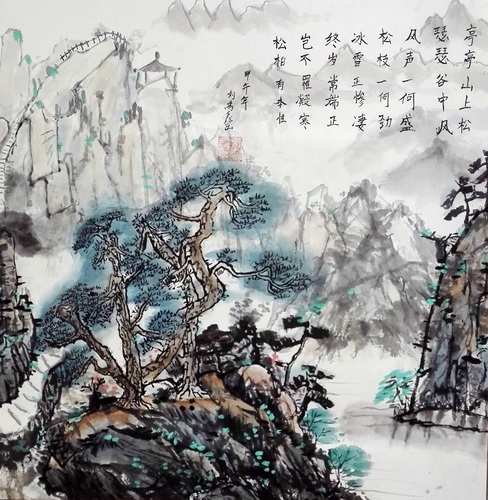 亭亭山上松
瑟瑟谷中风
风声一何盛
松枝一何劲
冰雪正惨凄
终岁常端正
岂不罹凝寒
松柏有本性
甲午年